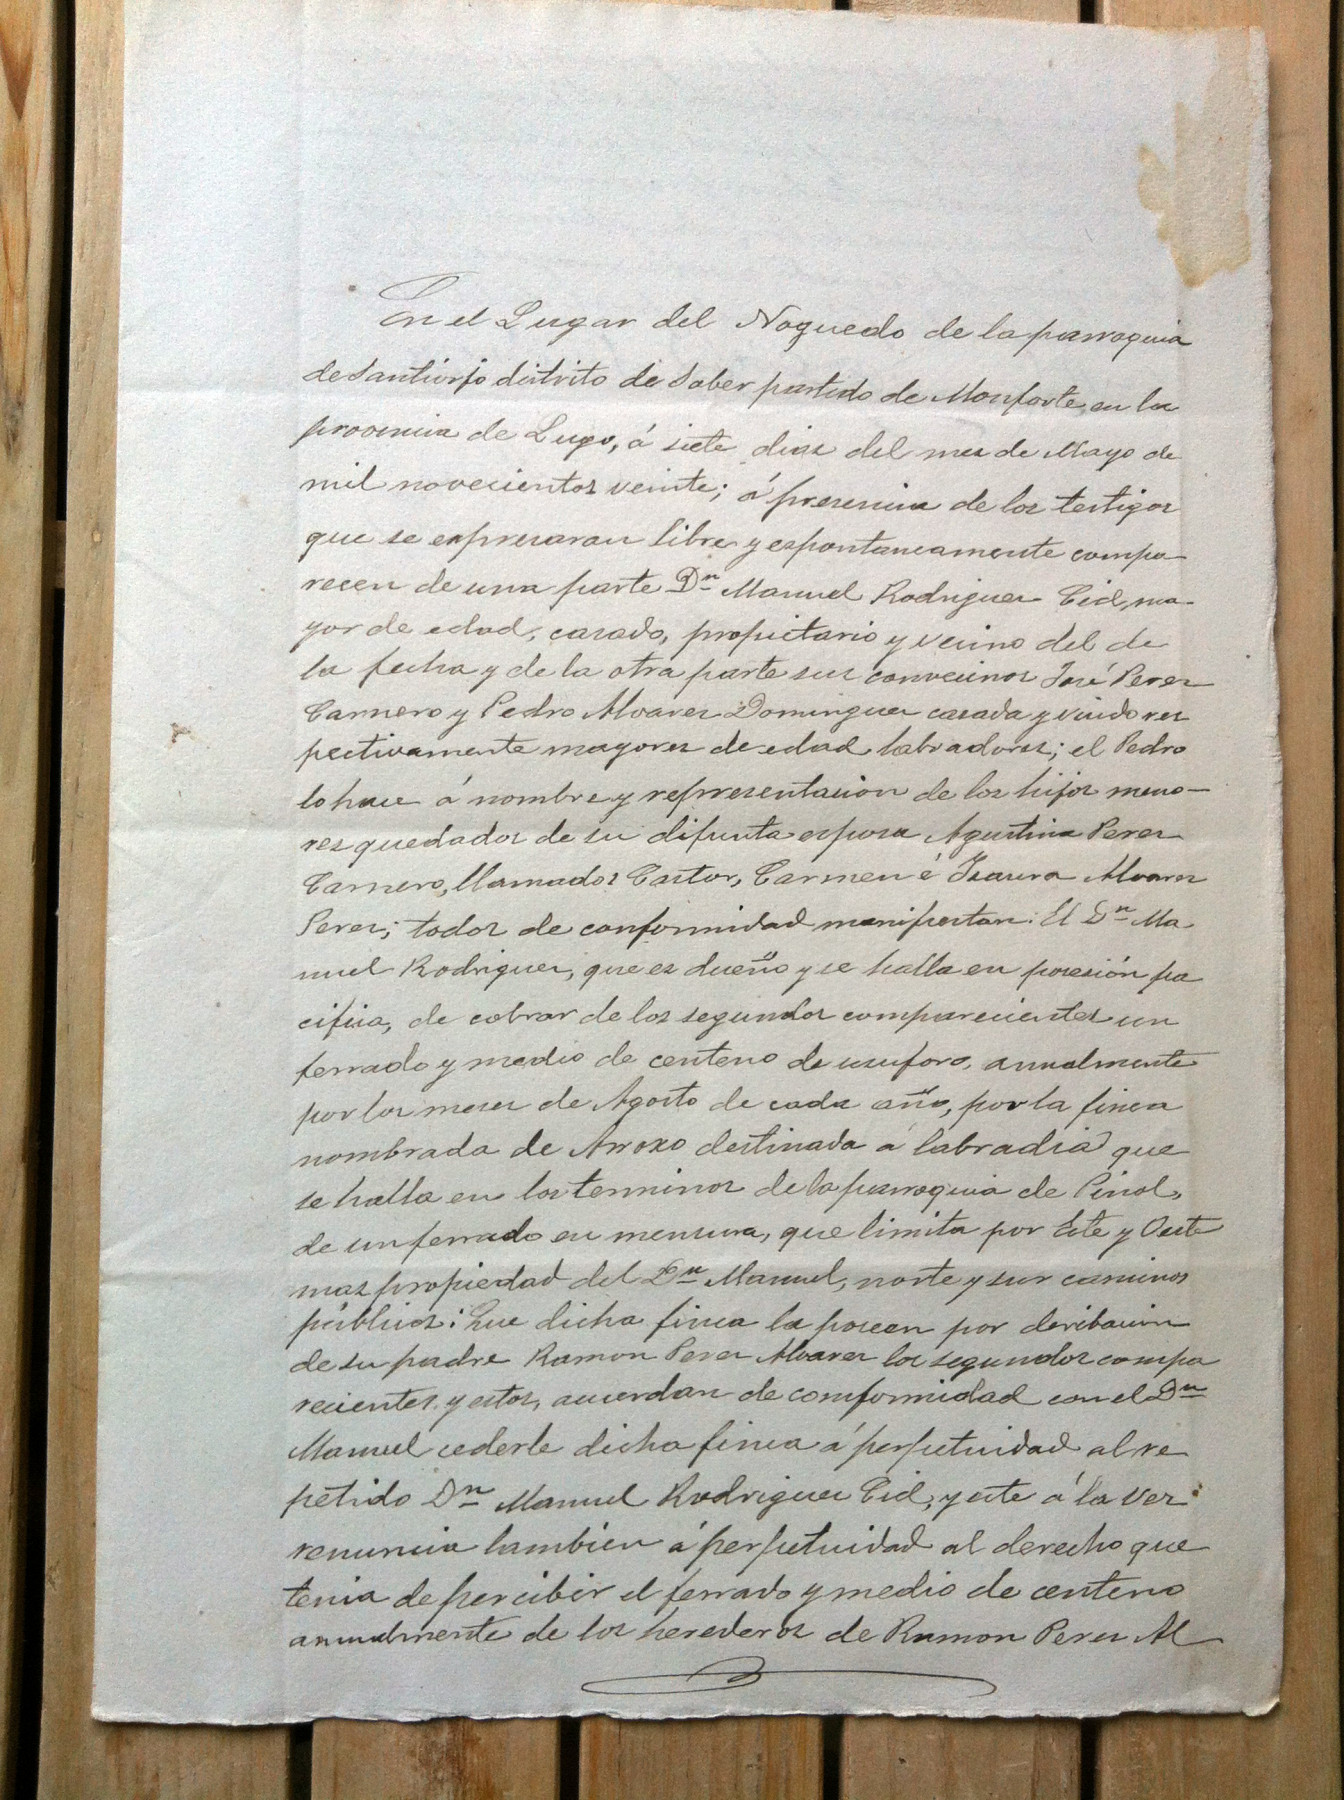 En el Lugar del Noguedo de la parroquia
de Santiorjo distrito de Sober partido de Monforte, en la
provincia de Lugo, á siete dias del mes de Mayo de
mil novecientos veinte; á presencia de los testigos
que se expresaran libre y espontaneamente compa-
recen de una parte Dn Manuel Rodriguez Cid, ma-
yor de edad, casado, propietario y vecino del de
la fecha y de la otra parte sus convecinos José Perez
Carnero y Pedro Alvarez Dominguez casada y viudo res
pectivamente mayores de edad labradores; el Pedro
lo hace á nombre y representacion de los hijos meno-
res quedados de su difunta esposa Agustina Perez
Carnero, llamados Castor, Carmen é Isaura Alvarez
Perez; todos de conformidad manifiestan: El Dn Ma
nuel Rodriguez, que es dueño y se halla en posesión pa
cifica, de cobrar de los segundos comparecientes un
ferrado y medio de centeno de usuforo, anualmente
por los meses de Agosto de cada año, por la finca
nombrada de Arroxo destinada á labradia que
se halla en los terminos de la parroquia de Pinol,
de un ferrado en mensura, que limita por Este y Oeste
mas propiedad del Dn Manuel, norte y sur caminos
públicos: Que dicha finca la poseen por deribacion
de su padre Ramon Perez Alvarez los segundos compa
recientes y estos, acuerdan de comformidad con el Dn
Manuel cederle dicha finca á perpetuidad al re
petido Dn Manuel Rodriguez Cid, y este á la vez
renuncia tambien á perpetuidad al derecho que
tenia de percibir el ferrado y medio de centeno
anualmente de los herederos de Ramon Perez Al